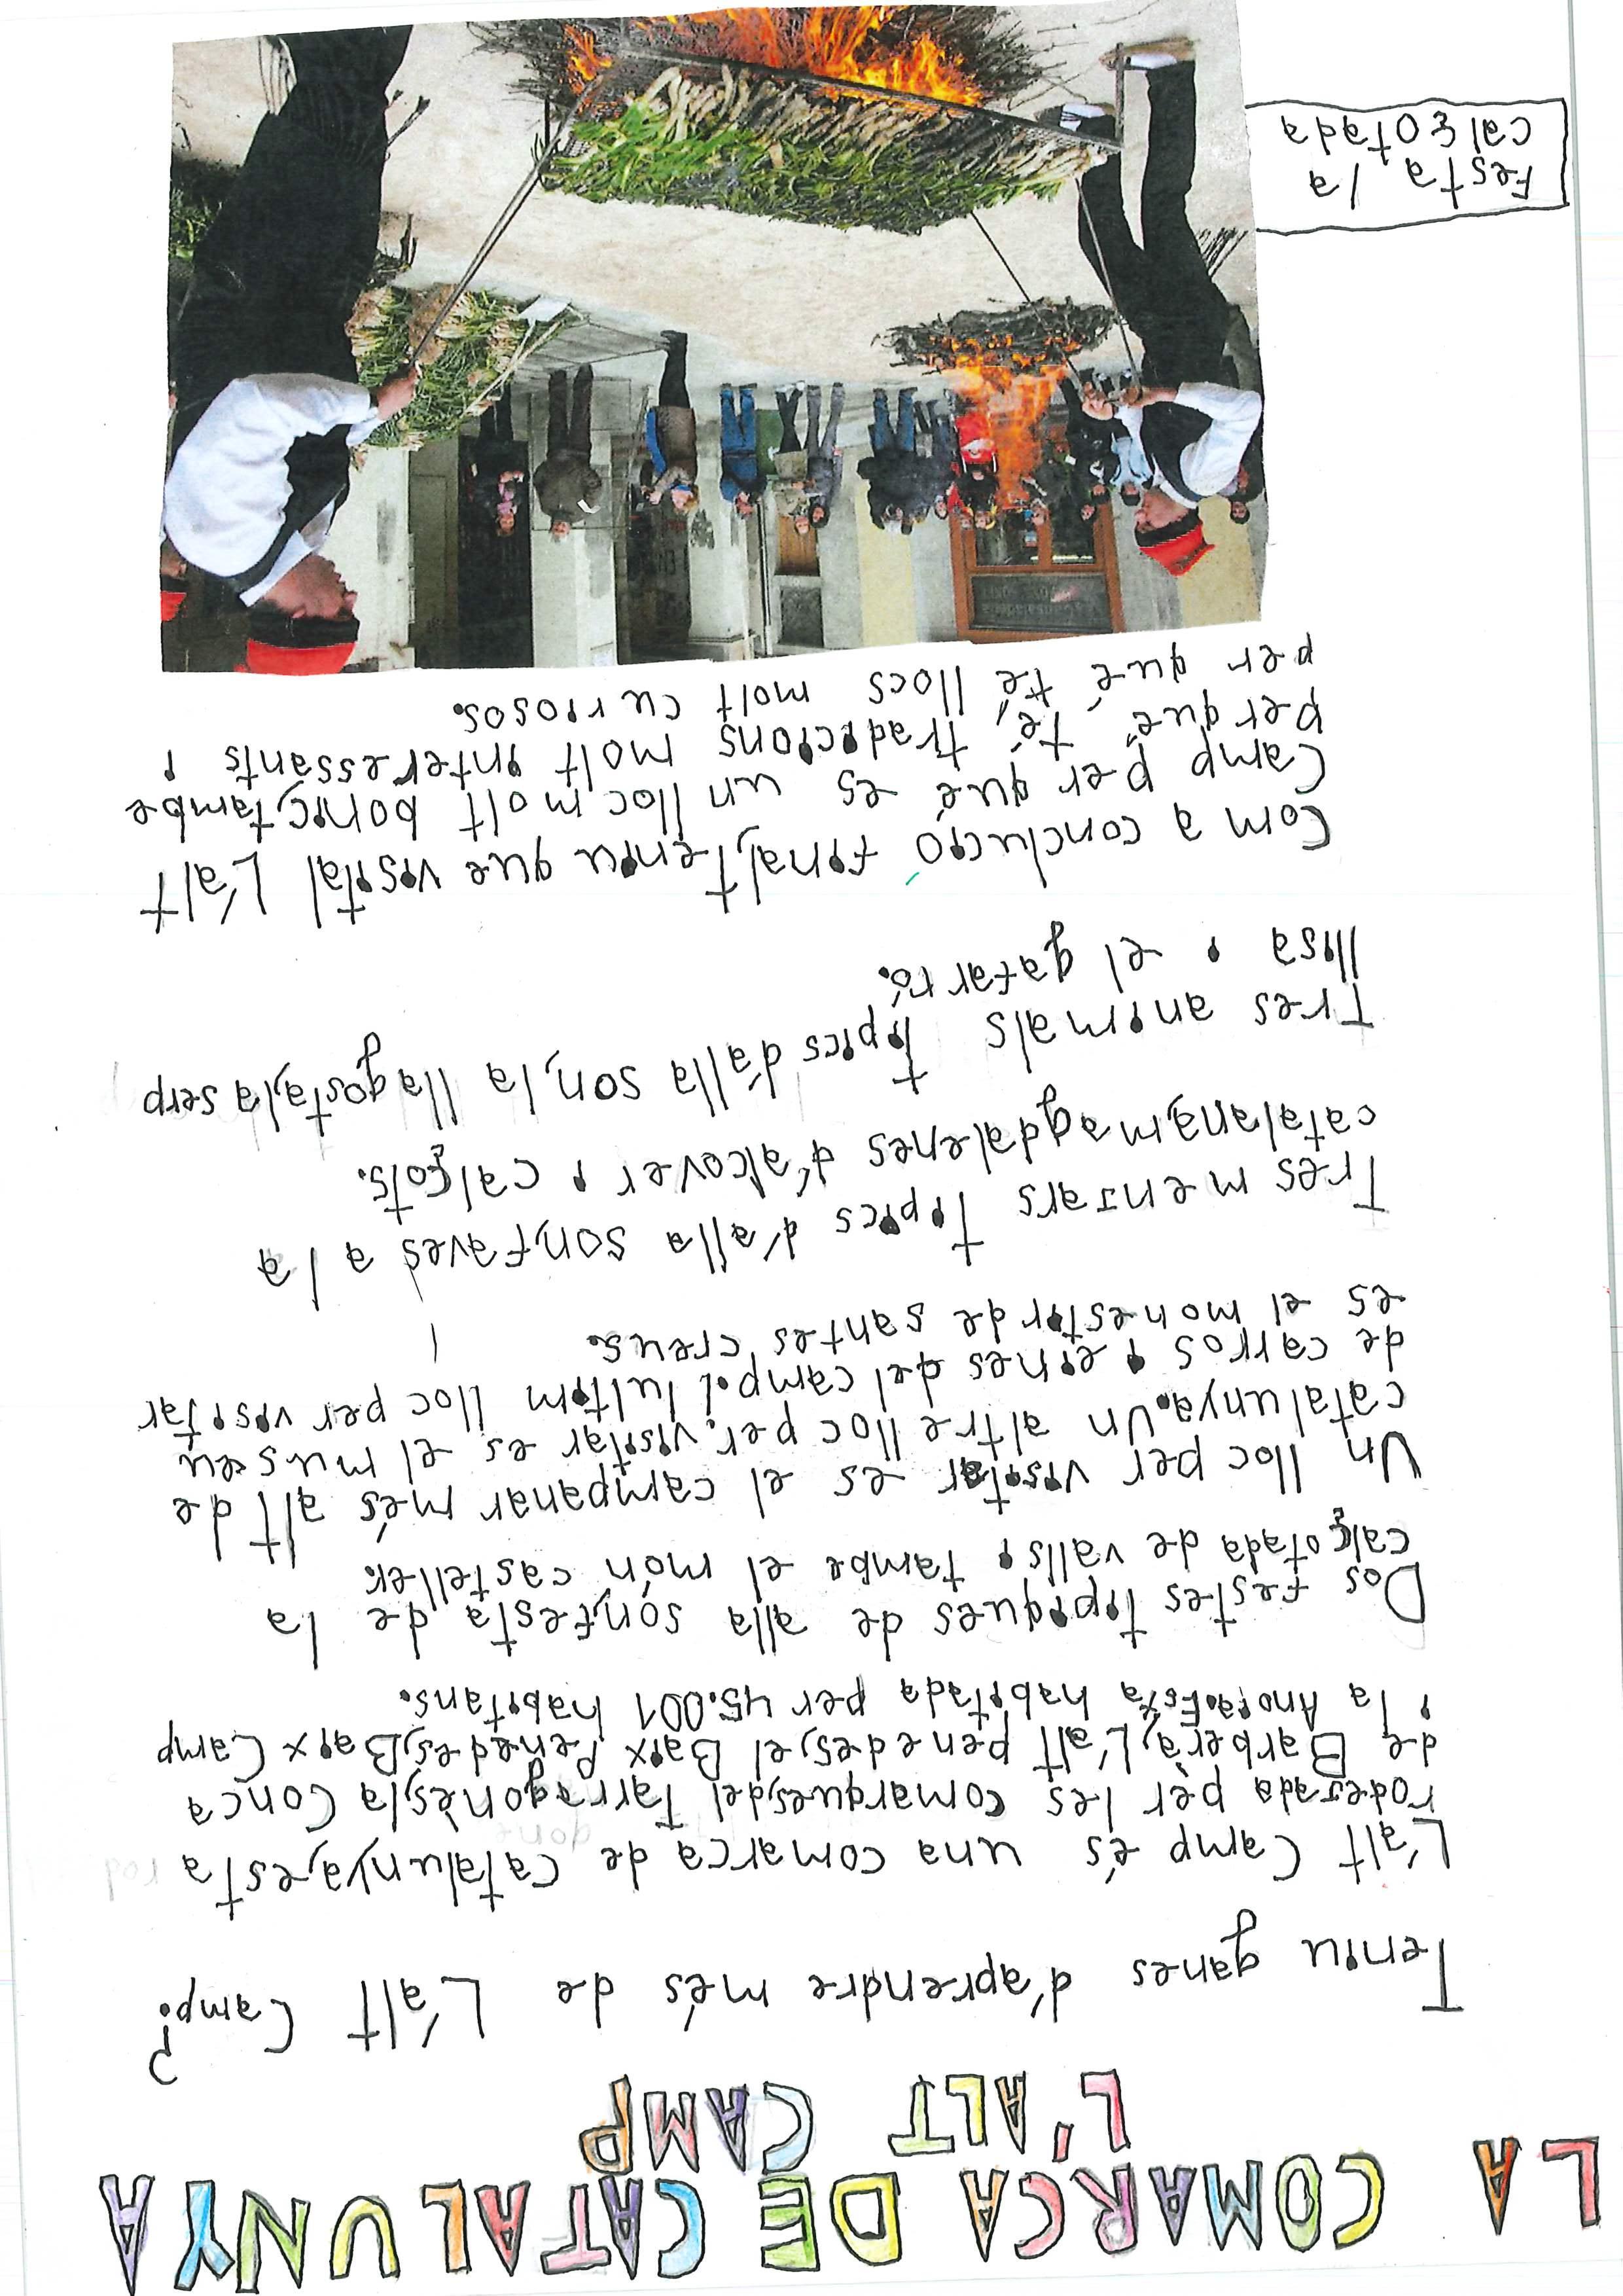 LA COMARCA DE CATALUNYA
L'ALT CAMP
Teniu ganes d'aprendre més de L'alt Camp?
L'alt Camp és una comarca de catalunya, esta
rodejada pèr les comarques, del Tarragonès, la Conca
de Barberà, L'alt penedes, el Baix Penedes, Baix Camp
i la Anoia. Esta habitada per 45.001 habitans.
Dos festes tipiques de alla són, festa de la
calçotada de valls i tambe el món casteller.
Un lloc per visitar es el campanar més alt de
catalunya. Un altre lloc per visitar es el museu
de carros i eines del camp i lultim lloc per visitar
es el monestir de santes creus.
Tres menjars tipics d'alla son, faves a la
catalana, magdalenes d'alcover i calçots.
Tres animals tipics d'alla son, la llagosta, la serp
llisa i el gafarró.
Com a conclució final, teniu que visital L'alt
Camp per què es un lloc molt bonic, tambe
perquè té, tradicions molt interessants i
per què té llocs molt curiosos.
Festa la
calçotada